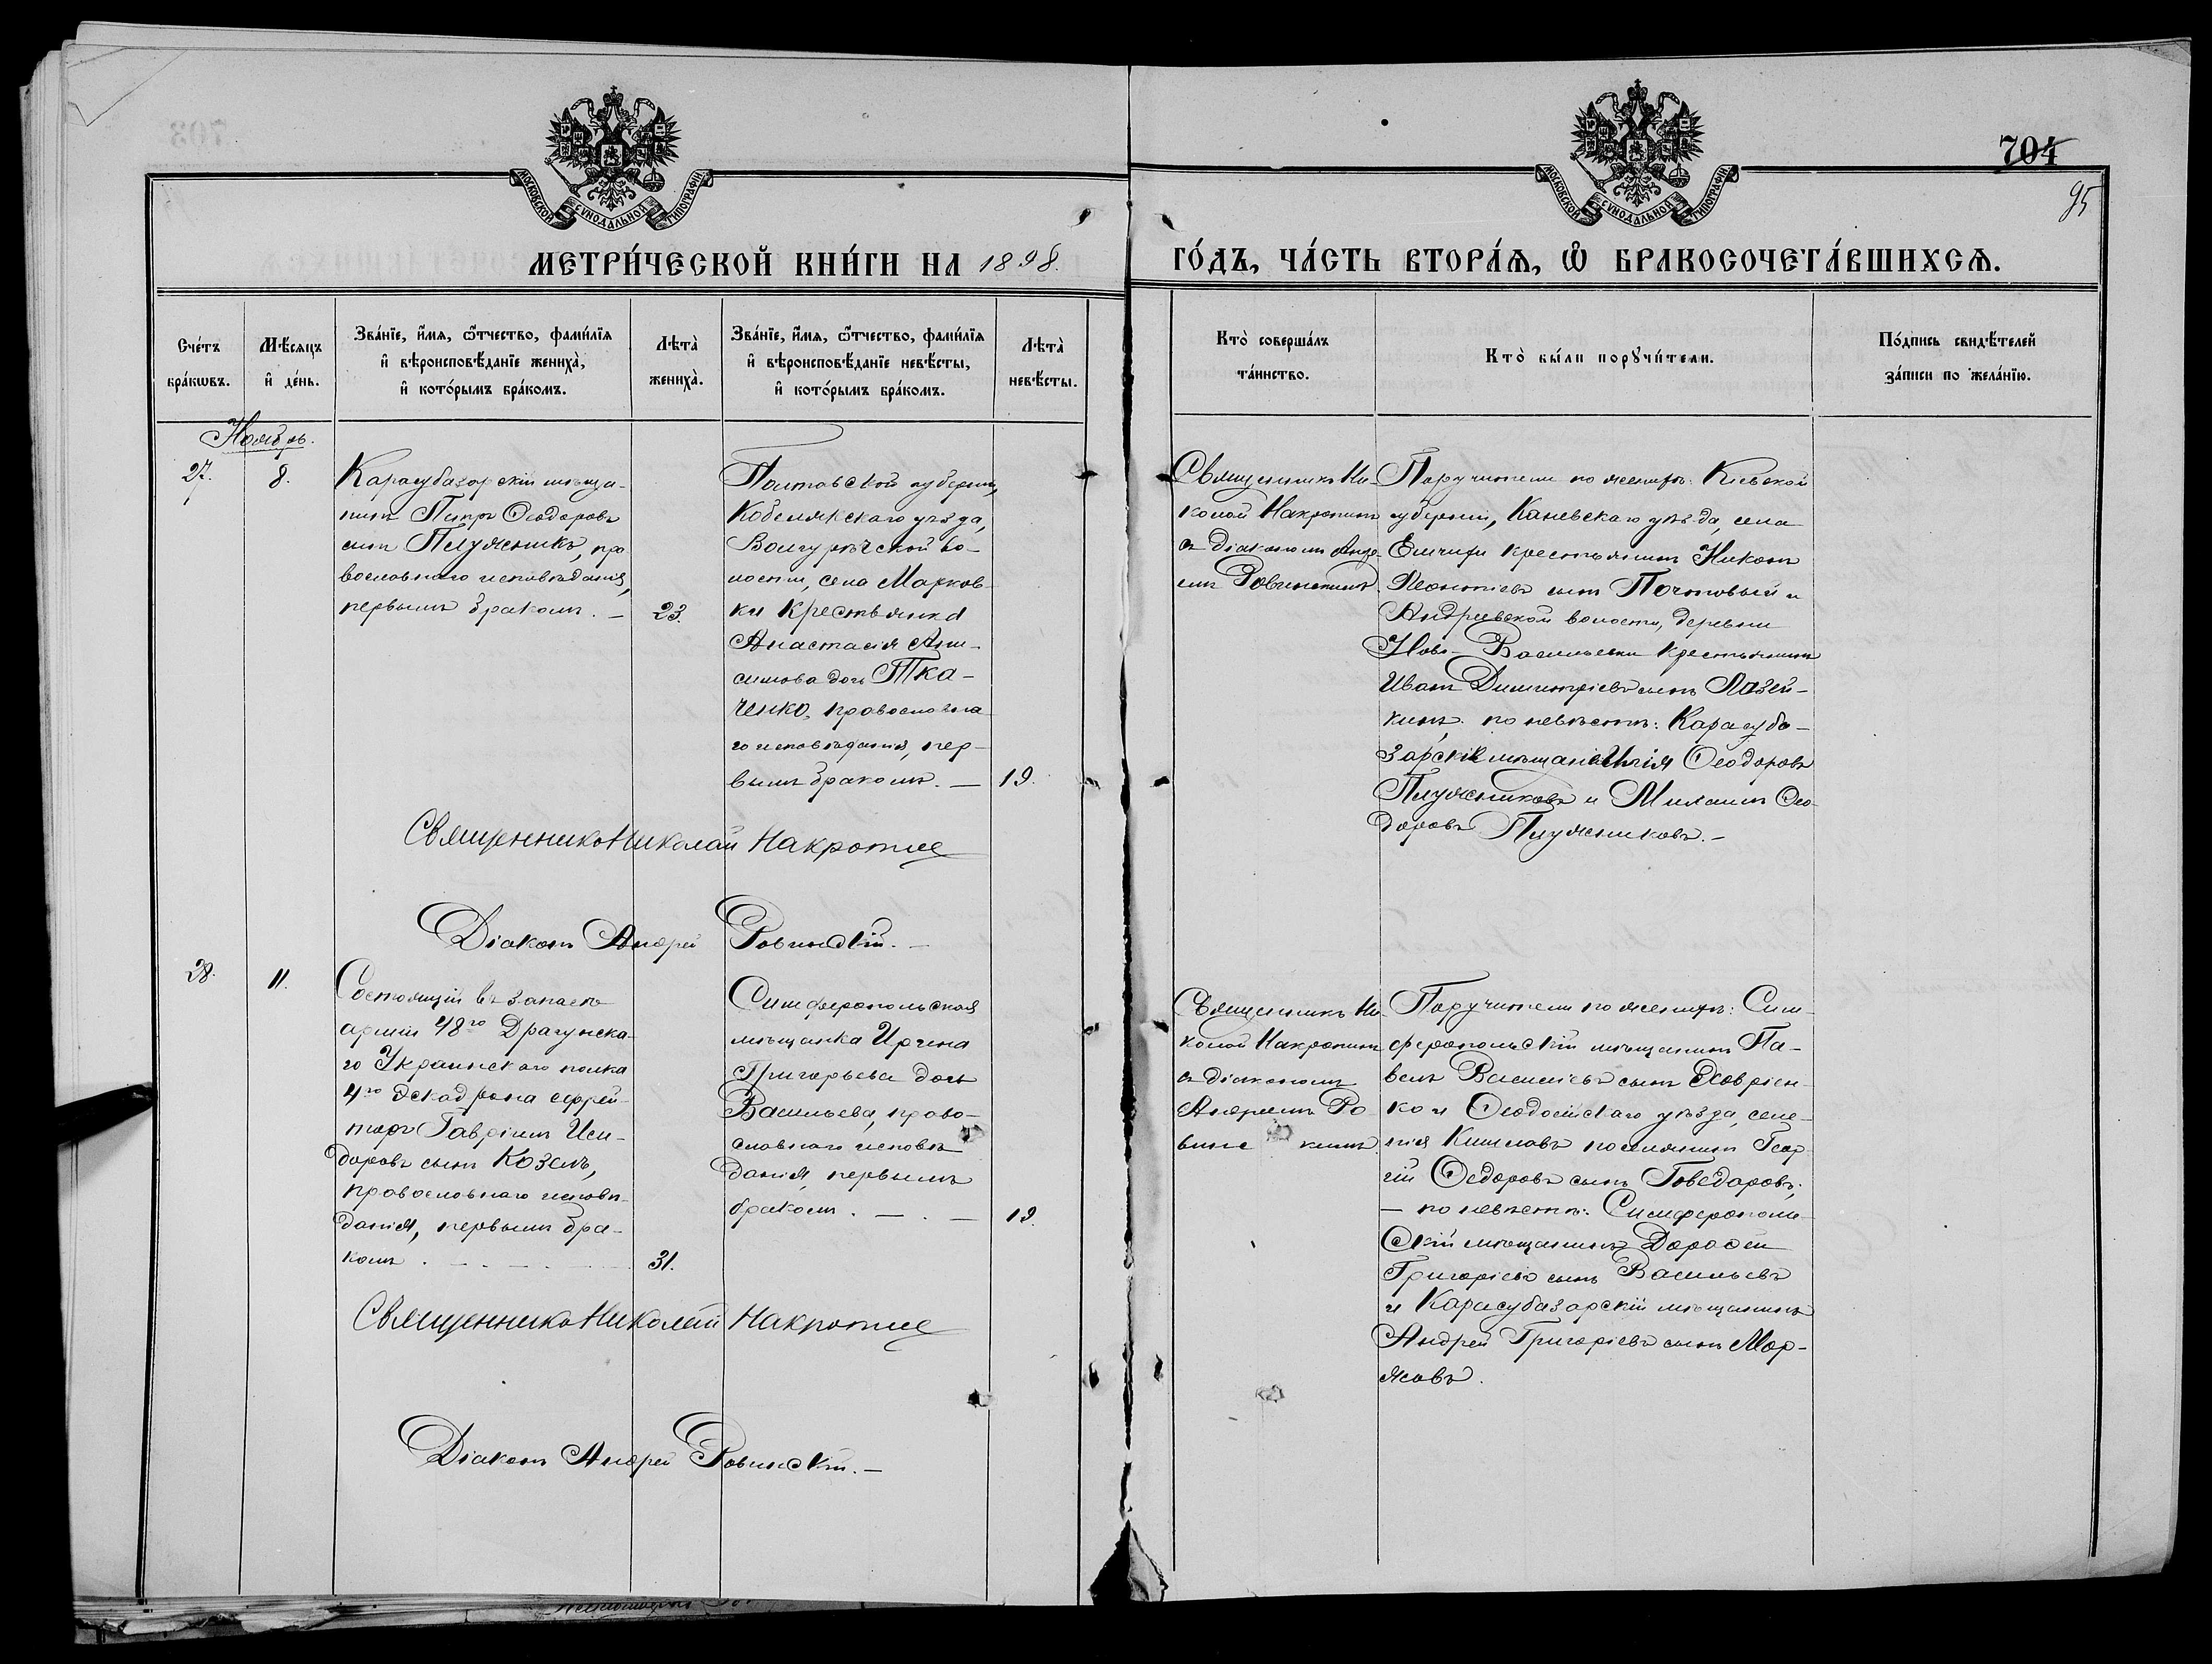 704
95
МОСКОВСКОЙ СУНОДАЛЬНОЙ ТИПОГРАФІИ
МОСКОВСКОЙ СУНОДАЛЬНОЙ ТИПОГРАФІИ
МЕТРИ́ЧЕСКОЙ КНИ́ГИ НА 1898.
ГО́ДЪ, ЧА́СТЬ ВТОРА́Ѧ, Ѽ БРАКОСОЧЕТА́ВШИХСѦ.
Сче́тъ
бра́кѡвъ.
Мѣ́сѧцъ
и҆ де́нь.
Зва́нїе, и҆́мѧ, ѻ҆́тчество, фами́лїѧ
и҆ вѣроисповѣ́данїе жениха̀,
и҆ кото́рымъ бра́комъ.
Лѣта̀
жениха̀.
Зва́нїе, и҆́мѧ, ѻ҆́тчество, фами́лїѧ
и҆ вѣроисповѣ́данїе невѣ́сты,
и҆ кото́рымъ бра́комъ.
Лѣта̀
невѣ́сты.
Кто̀ соверша́лъ
та́инство.
Кто̀ бы́ли порꙋчи́тели.
По́дпись свидѣ́телей
за́писи по жела́нїю.
Ноябрь.
27.
8.
Карасубазарскій мѣща-
нинъ Петръ Ѳеодоровъ
сынъ Плужникъ, пра
вославнаго исповѣданія,
первымъ бракомъ. —
23.
Полтавской губерніи,
Кобелякскаго уѣзда,
во-
лости, села Марков-
ки крестьянка
Анастасія Ани-
симова дочь Тка-
ченко, православна
го исповѣданія, пер-
вымъ бракомъ. —
19.
Священникъ Ни-
колай Накропинъ
съ діакономъ Андре-
емъ Ровинскимъ.
Поручители по женихѣ: Кіевской
губерніи, Каневскаго уѣзда, села
крестьянинъ
Леонтіевъ сынъ Почтовый и
Андреевской волости, деревни
Ново-Васильевки крестьянинъ
Иванъ Димитріевъ сынъ Лазей-
кинъ, по невѣстѣ: Карасуба-
зарскіе мѣщане Илія Ѳеодоровъ
Плужниковъ и Михаилъ Ѳео-
доровъ Плужниковъ.-
Священникъ Николай
Діаконъ Андрей Ровинскій. —
28.
11.
Состоящій въ запасѣ
арміи 48го Драгунска-
го Украинскаго полка
4го Эскадрона ефрей-
торъ Гавріилъ Иси-
доровъ сынъ Козелъ,
православнаго исповѣ-
данія, первымъ бра-
комъ. — . — . —
31.
Симферопольская
мѣщанка Ирина
Григорьева дочь
Васильева, право-
славнаго исповѣ
данія, первымъ
бракомъ. — . —
19.
Священникъ Ни-
колай Накропинъ
съ діакономъ
Андреемъ Ро-
винс кимъ.
Поручители по женихѣ: Сим-
феропольскій мѣщанинъ Па-
велъ Васильевъ сынъ Ховріен-
ко и Ѳеодосійскаго уѣзда, селе-
нія Кишлавъ поселянинъ Геор-
гій Ѳедоровъ сынъ Говедаровъ;
— по невѣстѣ: Симферополь-
скій мѣщанинъ Дороѳей
Григоріевъ сынъ Васильевъ
и Карасубазарскій мѣщанинъ
Андрей Григоріевъ сынъ Мор-
жовъ.
Священникъ Николай
Діаконъ Андрей Ровинскій. —